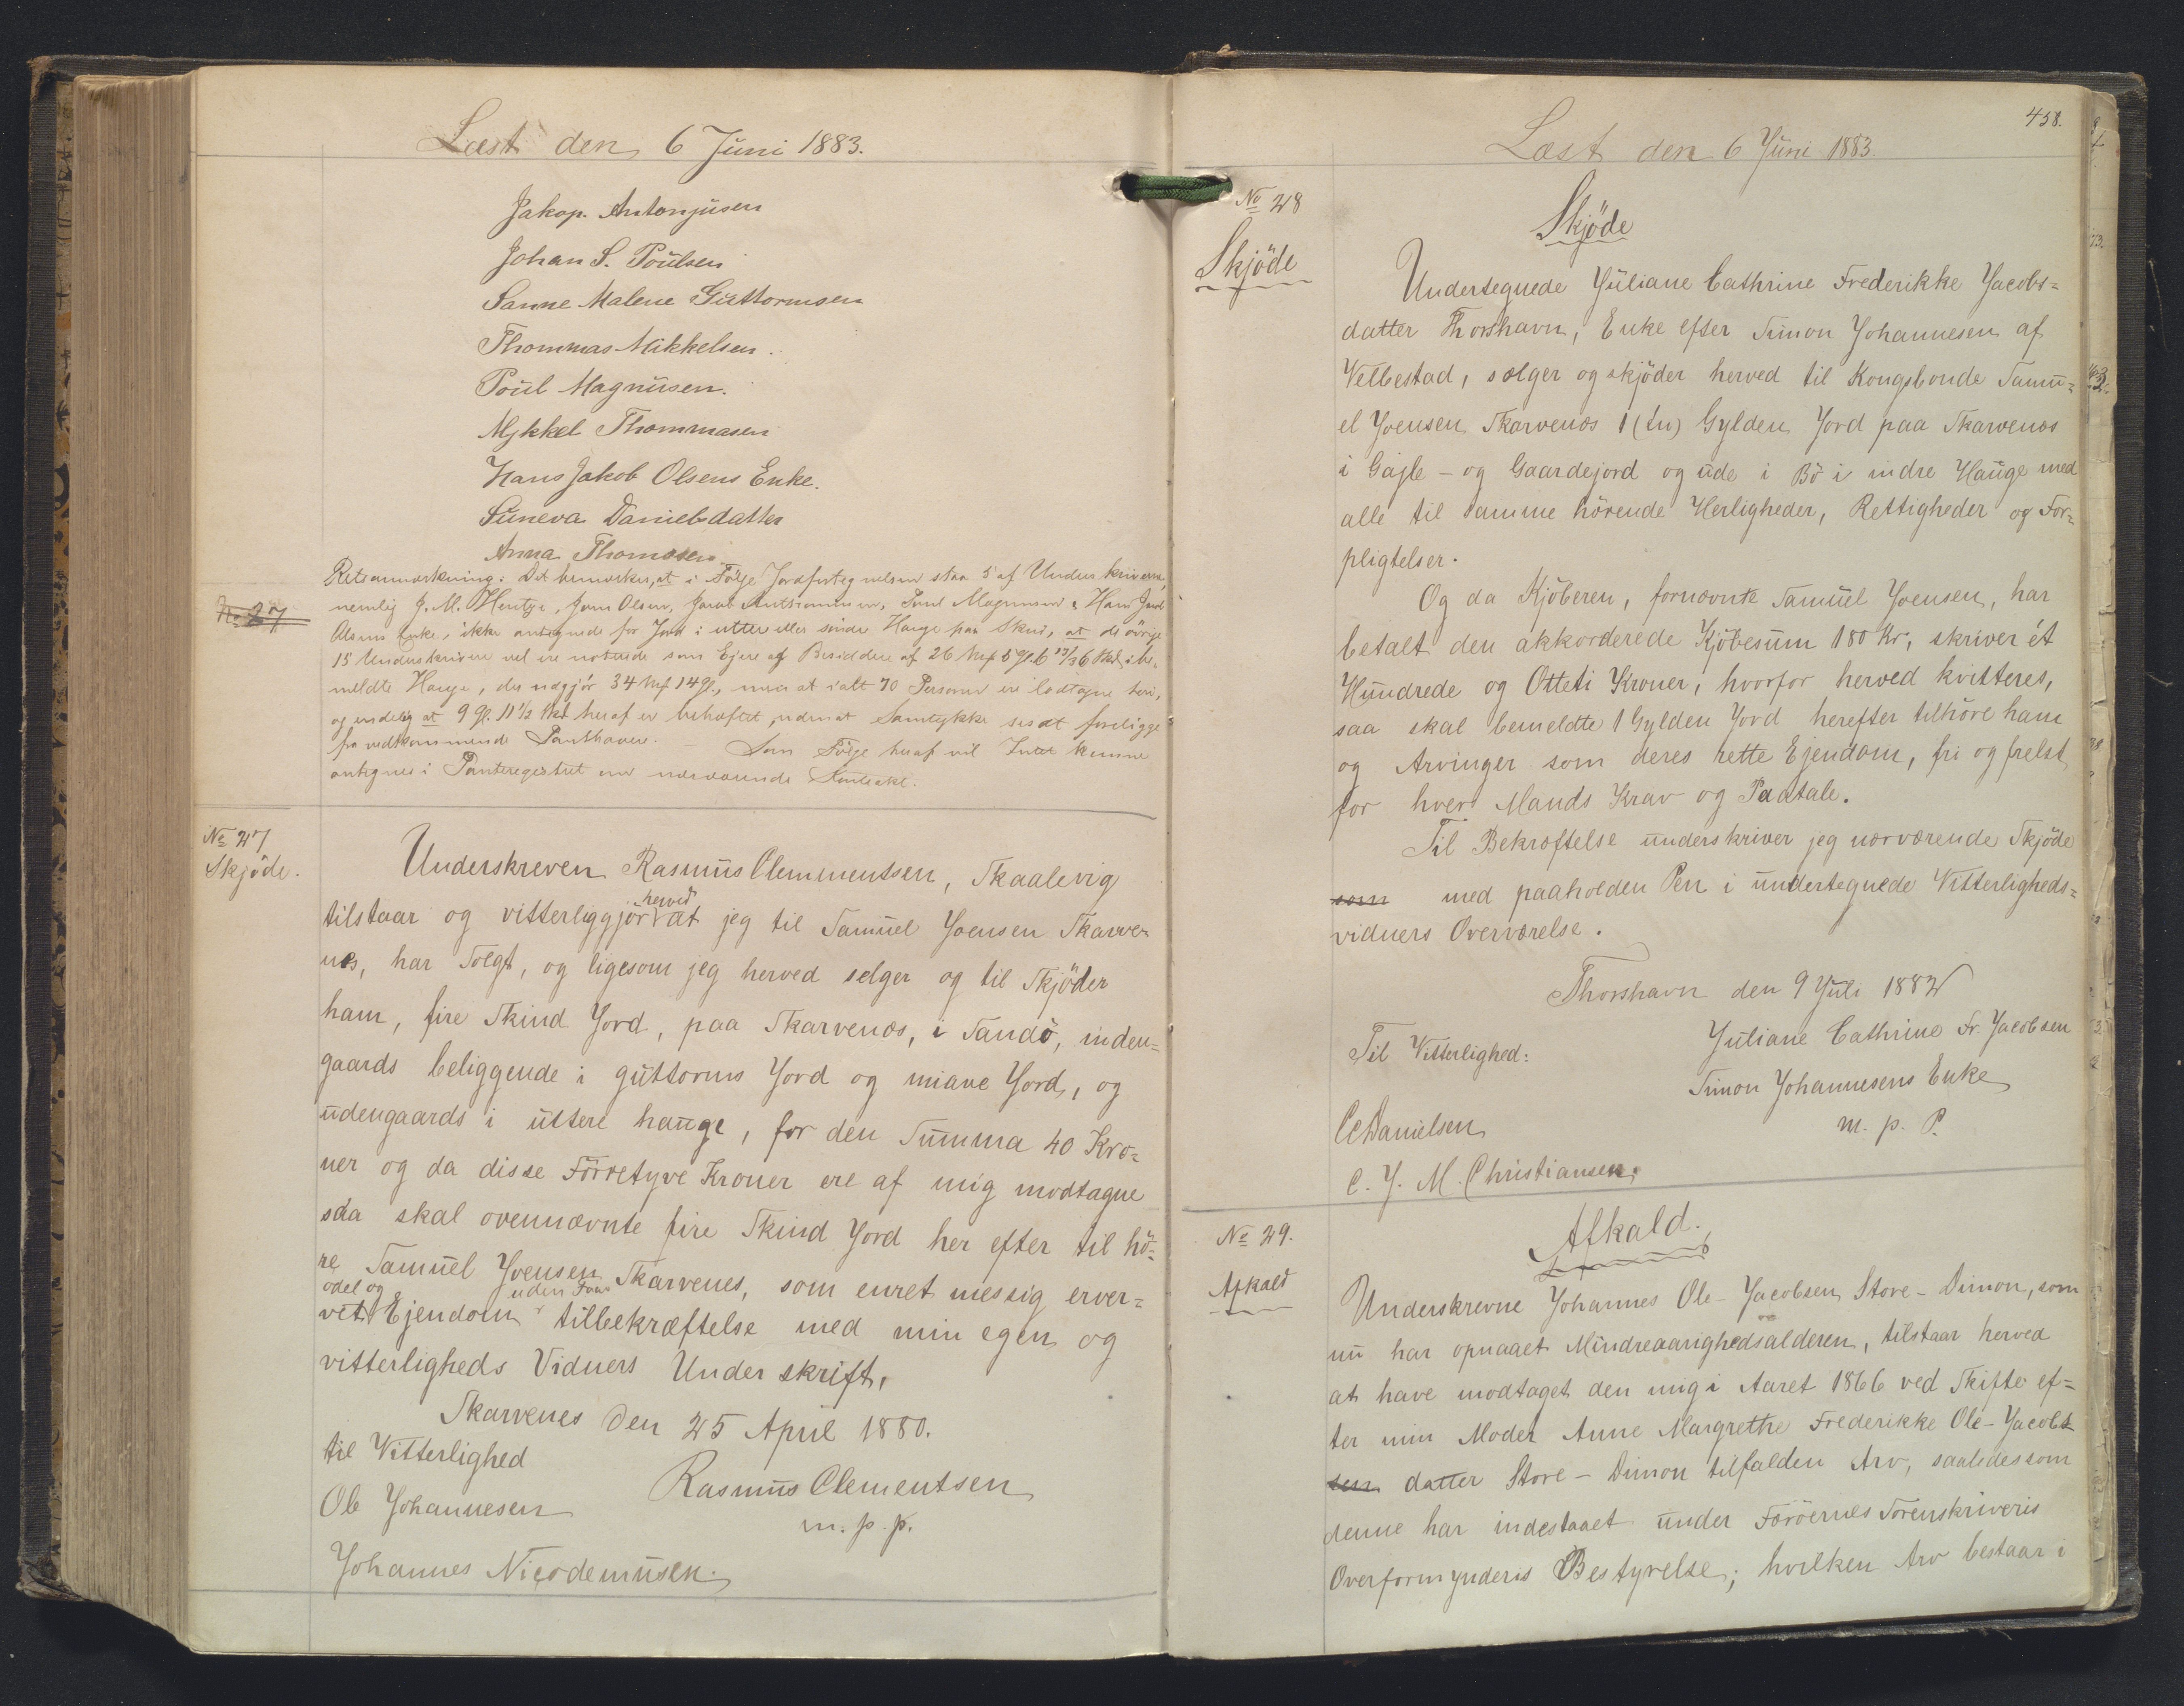 Læst den 6 Juni 1883.
Jakop. Antonjusen
Johan S. Poulsen
Sanne Malene Guttormsen
Thommas Mikkelsen.
Poul Magnusen.
Mykkel Thommasen
Hans Jakob Olsens Enke.
Suneva Danielsdatter
Anna Thomasen
Retsanmærkning: Det bemærkes, at i Følge Jordfortegnelsen staa 5 af Underskriverne,
nemlig J. M. Hentze, Jens Olsen, Jacob Anthoniusen, Poul Magnussen & Hans Jacob
Olsens Enke, ikke antegnede for Jord i uttere eller søndre Hauge paa Skuø, at de øvrige
15 Underskrivere vel ere noterede som Ejere og Besiddere af 26 Mrk 5 gl. 6 13/36 Skd i be-
meldte Hauge, der udgjör 34 Mrk 14 gl., men at ialt 70 Personer ere lodtagne heri,
og endelig at 9 gl. 11 1/2 Skd heraf er behæftet, uden at Samtykke sees at foreligge
fra vedkommende Panthaver. — Som Følge heraf vil Intet kunne
antegnes i Panteregistret om nærværende
No 27
No 27
Skjöde.
Underskreven Rasmus Clemmentsen, Skaalevig
tilstaar og vitterliggjör herved at jeg til Samuel Joensen Skarve-
nes, har Solgt, og ligesom jeg herved selger og til Skjöder
ham, fire Skind Jord, paa Skarvenæs, i Sandö, inden-
gaards beliggende i guttorms Jord og miave Jord, og
udengaards i uttere hauge, for den Summa 40 Kro-
ner og da disse Förretyve Kroner ere af mig modtagne
saa skal ovennævnte fire Skind Jord her efter til hö-
re Samuel Joensen Skarvenes, som enret messig erver-
vet odel og Ejendom uden tillbekræftelse med min egen og
vitterligheds Vidners Under skrift,
Skarvenes den 25 April 1880.
til Vitterlighed
Rasmus Clementsen
m. p. p.
Ole Johannesen
Johannes Nicodemusen.
458.
Læst den 6 Juni 1883.
No 28
Skjöde
Skjöde
Undertegnede Juliane Cathrine Frederikke Jacobs-
datter Thorshavn, Enke efter Simon Johannesen af
Velbestad, sælger og skjöder herved til Kongsbonde Samu-
el Joensen Skarvenæs 1 (én) Gylden Jord paa Skarvenæs
i Gajle - og Gaardejord og ude i Bö i indre Hauge med
alle til samme hörende Herligheder, Rettigheder og For-
pligtelser.
Og da Kjöberen, fornævnte Samuel Joensen, har
betalt den akkorderede Kjöbesum 180 Kr, skriver ét
Hundrede og Otteti Kroner, hvorfor herved kvitteres,
saa skal bemeldte 1 Gylden Jord herefter tilhöre ham
og Arvinger som deres rette Ejendom, fri og frelst
for hver Mands Krav og Paatale.
Til Bekræftelse underskriver jeg nærværende Skjöde
som med paaholden Pen i undertegnede Vitterligheds-
vidners Overværelse.
Thorshavn den 9 Juli 1882
Til Vitterlighed:
Juliane Cathrine Fr. Jacobsen
Simon Johannesens Enke
m. p. P.
CC Danielsen
C. J. M. Christiansen.
No 29.
Afkald
Afkald.
Underskrevne Johannes Ole-Jacobsen Store-Dimon, som
nu har opnaaet Mindreaarighedsalderen, tilstaar herved
at have modtaget den mig i Aaret 1866 ved Skifte ef-
ter min Moder Anne Margrethe Frederikke Ole-Jacobs
sen datter Store-Dimon tilfalden Arv, saaledes som
denne har indestaaet under Færöernes Sorenskriveris
Overformynderis Bestyrelse; hvilken Arv bestaar i